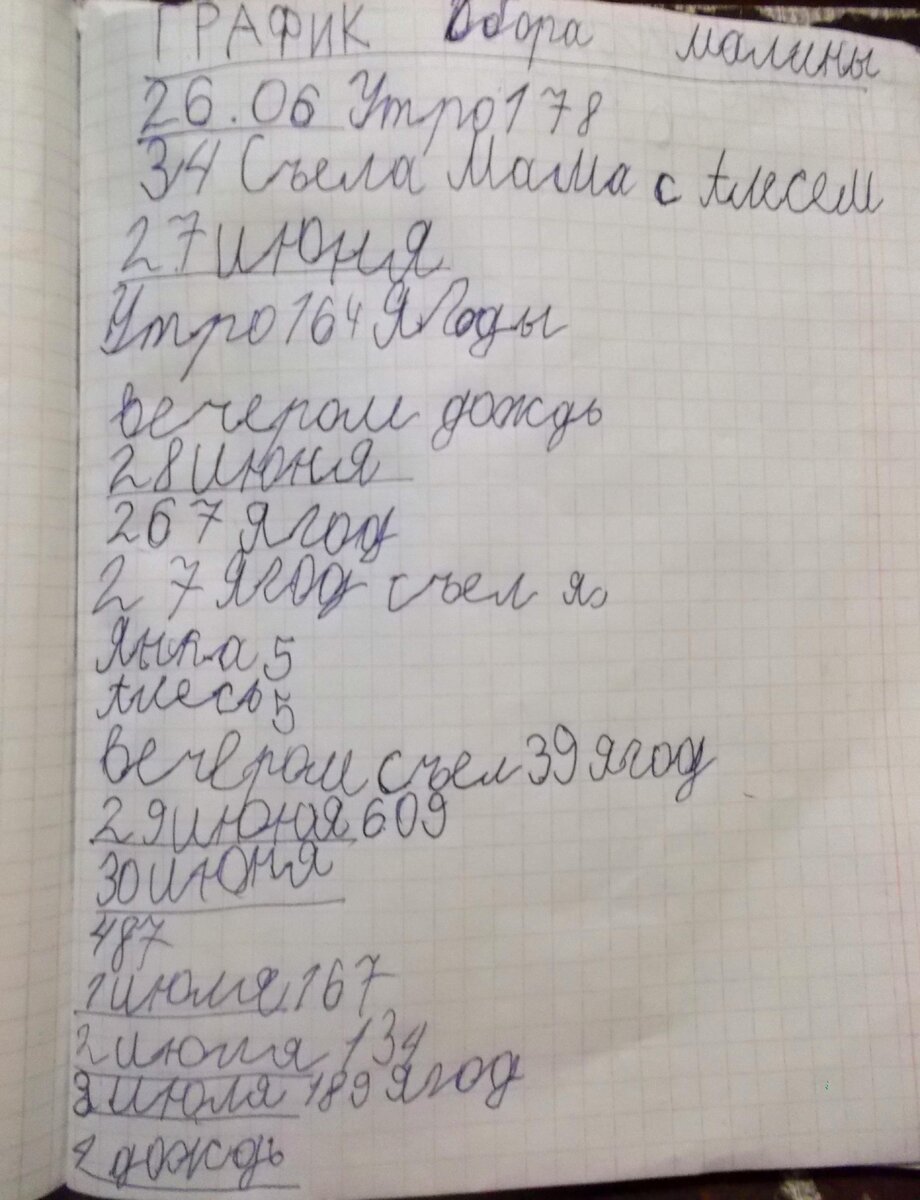 ГРАФИК сбора малины
26.06 Утро 178
34 Съела Мама с Алесем
27 июня
Утро 164 Ягоды
вечером дождь
28 июня
267 ягод
27 ягод съел я,
Янка 5
Алесь 5
Вечером съел 39 ягод
29 июня 609
30 июня
487
1 июля 167
2 июля 134
3 июля 189 ягод
4 дождь